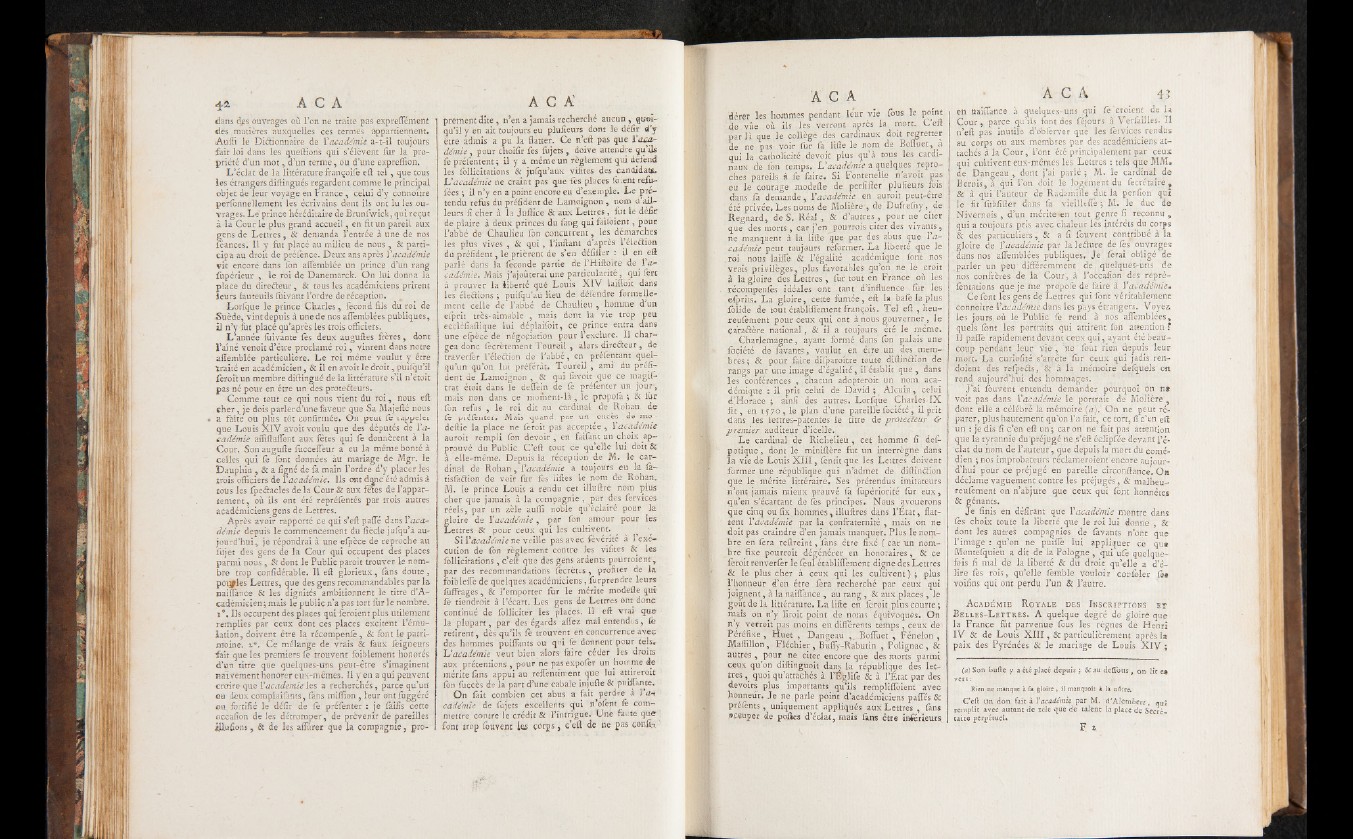 42 A C A
dans des ouvrages où l'on ne traite pas expressément
des matières auxquelles ces termes appartiennent.
Aussi le Dictionnaire de l'académie a-t-il toujours
fait loi dans les questions qui s'élèvent sur la pro-
priété d'un mot, d'un terme, ou d'une expression.
L'éclat de la littérature françoise est tel, que tous
les étrangers distingués regardent comme le principal
objet de leur voyage en France, celui d'y connoître
personnellement les écrivains dont ils ont lu les ou-
vrages. Le prince héréditaire de Brunswick, qui reçut
à la Cour le plus grand accueil, en fit un pareil aux
gens de Lettres, & demanda l'entrée à une de nos
séances. Il y fut placé au milieu de nous, & parti-
cipa au droit de présence. Deux ans après l'académie
vit encore dans son assemblée un prince d'un rang
supérieur, le roi de Danemarck. On lui donna la
place du directeur, & tous les académiciens prirent
leurs fauteuils suivant l'ordre de réception.
Lorsque le prince Charles, second fils du roi de
Suède, vint depuis à une de nos assemblées publiques,
il n'y fut placé qu'après les trois officiers.
L'année suivante ses deux augustes frères, dont
l'aîné venoit d'être proclamé roi, vinrent dans notre
assemblée particulière. Le roi même voulut y être
traité en académicien, & il en avoit le droit, puisqu'il
seroit un membre distingué de la littérature s'il n'étoit
pas né pour en être un des protecteurs.
Comme tout ce qui nous vient du roi, nous est
cher, je dois parler d'une faveur que Sa Majesté nous
a faite ou plus tôt confirmée. On peut se rappeler
que Louis XIV avoit voulu que des députés de l'a-
cadémie assistassent aux fêtes qui se donnèrent à la
Cour. Son auguste successeur a eu la même bonté à
celles qui se sont données au mariage de Mgr. le
Dauphin, & a signé de sa main l'ordre d'y placer les
trois officiers de l'académie. Ils ont donc été admis à
tous les spectacles de la Cour & aux fêtes de l'appar-
tement, où ils ont été représentés par trois autres
académiciens gens de Lettres.
Après avoir rapporté ce qui s'est passé dans l'aca-
démie depuis le commencement du siècle jusqu'à au-
jourd'hui, je répondrai à une espèce de reproche au
sujet des gens de la Cour qui occupent des places
parmi nous, & dont le Public paroît trouver le nom-
bre trop considérable. Il est glorieux, sans doute,
pour les Lettres, que des gens recommandables par la
naissance & les dignités ambitionnent le titre d'A-
cadémicien; mais le public n'a pas tort sur le nombre.
1°. Ils occupent des places qui seroient plus utilement
remplies par ceux dont ces places excitent l'ému-
lation, doivent être la récompense, & sont le patri-
moine. 2°. Ce mélange de vrais & faux seigneurs
fait que les premiers se trouvent foiblement honorés
d'un titre que quelques-uns peut-être s'imaginent
naïvement honorer eux-mêmes. Il y en a qui peuvent
croire que l'académie les a recherchés, parce qu'un
ou deux complaisants, sans mission, leur ont suggéré
ou fortifié le désir de se présenter : je saisis cette
occasion de les détromper, de prévenir de pareilles
illusions, & de les assurer que la compagnie, pro-
A C A
prement dite, n'en a jamais recherché aucun, quoi-
qu'il y en ait toujours eu plusieurs dont le désir d'y
être admis a pu la flatter. Ce n'est pas que l'aca-
démie, pour choisir ses sujets, doive attendre qu'ils
se présentent; il y a même un règlement qui défend
les sollicitations & jusqu'aux visites des candidats.
L'académie ne craint pas que ses places soient refu-
sées; il n'y en a point encore eu d'exemple. Le pré-
tendu refus du président de Lamoignon, nom d'ail-
leurs si cher à la Justice & aux Lettres, fut le désir
de plaire à deux princes du sang qui faisoient, pour
l'abbé de Chaulieu son concurrent, les démarches
les plus vives, & qui, l'instant d'après l'élection
du président, le prièrent de s'en désister : il en est
parlé dans la seconde partie de l'Histoire de l'a-
cadémie. Mais j'ajoûterai une particularité, qui sert
à prouver la liberté que Louis XIV laissoit dans
les élections; puisqu'au lieu de défendre formelle-
ment celle de l'abbé de Chaulieu, homme d'un
esprit très-aimable, mais dont la vie trop peu
ecclésiastique lui déplaisoit, ce prince entra dans
une espèce de négociation pour l'exclure. Il char-
gea donc secrètement Toureil, alors directeur, de
traverser l'élection de l'abbé, en présentant quel-
qu'un qu'on lui préférât. Toureil, ami du prési-
dent de Lamoignon, & qui savoit que ce magis-
trat étoit dans le dessein de se présenter un jour,
mais non dans ce moment-là, le proposa; & sur
son refus, le roi dit au cardinal de Rohan de
se présenter. Mais quand par un excès de mo-
destie la place ne seroit pas acceptée, l'académie
auroit rempli son devoir, en faisant un choix ap-
prouvé du Public. C'est tout ce qu'elle lui doit &
à elle-même. Depuis la réception de M. le car-
dinal de Rohan, l'académie a toujours eu la sa-
tisfaction de voir sur ses listes le nom de Rohan.
M. le prince Louis a rendu cet illustre nom plus
cher que jamais à la compagnie, par des services
réels, par un zèle aussi noble qu'éclairé pour la
gloire de l'académie, par son amour pour les
Lettres & pour ceux qui les cultivent.
Si l'académie ne veille pas avec sévérité à l'exé-
cution de son règlement contre les visites & les
sollicitations, c'est que des gens ardents pourroient,
par des recommandations secrètes, profiter de la
foiblesse de quelques académiciens, surprendre leurs
suffrages, & l'emporter sur le mérite modeste qui
se tiendroit à l'écart. Les gens de Lettres ont donc
continué de solliciter les places. Il est vrai que
la plupart, par des égards assez mal entendus, se
retirent, dès qu'ils se trouvent en concurrence avec
des hommes puissants ou qui se donnent pour tels.
L'académie veut bien alors faire céder les droits
aux prétentions, pour ne pas exposer un homme de
mérite sans appui au ressentiment que lui attireroit
son succès de la part d'une cabale injuste & puissante.
On sait combien cet abus a fait perdre à l'a-
cadémie de sujets excellents qui n'osent se com-
mettre contre le crédit & l'intrigue. Une faute que
font trop souvent les corps, c'est de ne pas consi-
A C A
dérer les hommes pendant leur vie sous le point
de vûe où ils les verront après la mort. C'est
par là que le collège des cardinaux doit regretter
de ne pas voir sur sa liste le nom de Bossuet, à
qui la catholicité devoit plus qu'à tous les cardi-
naux de son temps. L'académie a quelques repro-
ches pareils à se faire. Si Fontenelle n'avoit pas
eu le courage modeste de persister plusieurs fois
dans sa demande, l'académie en auroit peut-être
été privée. Les noms de Molière, de Dufresny, de
Regnard, de S. Réal, & d'autres, pour ne citer
que des morts, car j'en pourrois citer des vivants,
ne manquent à la liste que par des abus que l'a-
cadémie peut toujours réformer. La liberté que le
roi nous laisse & l'égalité académique sont nos
vrais privilèges, plus favorables qu'on ne le croit
à la gloire des Lettres, sur tout en France où les
récompenses idéales ont tant d'influence sur les
esprits. La gloire, cette fumée, est la base la plus
solide de tout établissement françois. Tel est, heu-
reusement pour ceux qui ont à nous gouverner, le
caractère national, & il a toujours été le même.
Charlemagne, ayant formé dans son palais une
société de savants, voulut en être un des mem-
bres; & pour faire disparoître toute distinction de
rangs par une image d'égalité, il établit que, dans
les conférences, chacun adopteroit un nom aca-
démique : il prit celui de David; Alcuin, celui
d'Horace; ainsi des autres. Lorsque Charles IX
fit, en 1570, le plan d'une pareille société, il prit
dans les lettres-patentes le titre de protecteur &
premier auditeur d'icelle.
Le cardinal de Richelieu, cet homme si des-
potique, dont le ministère fut un interrègne dans
la vie de Louis XIII, sentit que les Lettres doivent
former une république qui n'admet de distinction
que le mérite littéraire. Ses prétendus imitateurs
n'ont jamais mieux prouvé sa supériorité sur eux,
qu'en s'écartant de ses principes. Nous avouerons
que cinq ou six hommes, illustres dans l'État, flat-
tent l'académie par la confraternité, mais on ne
doit pas craindre d'en jamais manquer. Plus le nom-
bre en sera restreint, sans être fixé (car un nom-
bre fixe pourroit dégénérer en honoraires, & ce
seroit renverser le seul établissement digne des Lettres
& le plus cher à ceux qui les cultivent); plus
l'honneur d'en être sera recherché par ceux qui
joignent, à la naissance, au rang, & aux places, le
goût de la littérature. La liste en seroit plus courte;
mais on n'y liroit point de noms équivoques. On
n'y verroit pas moins en différents temps, ceux de
Péréfixe, Huet, Dangeau, Bossuet, Fénelon,
Massillon, Fléchier, Bussy-Rabutin, Polignac, &
autres, pour ne citer encore que des morts parmi
ceux qu'on distinguoit dans la république des let-
tres, quoi qu'attachés à l'Église & à l'État par des
devoirs plus importants qu'ils remplissoient avec
honneur. Je ne parle point d'académiciens passés &
présents, uniquement appliqués aux Lettres, sans
occuper de postes d'éclat, mais sans être inférieurs
A C A 43
en naissance à quelques-uns qui se croient de la
Cour, parce qu'ils font des séjours à Versailles. Il
n'est pas inutile d'observer que les services rendus
au corps ou aux membres par des académiciens at-
tachés à la Cour, l'ont été principalement par ceux
qui cultivent eux-mêmes les Lettres : tels que MM.
de Dangeau, dont j'ai parlé; M. le cardinal de
Bernis, à qui l'on doit le logement du secrétaire,
& à qui l'auteur de Radamiste dut la pension qui
le fit subsister dans sa vieillesse; M. le duc de
Nivernois, d'un mérite en tout genre si reconnu,
qui a toujours pris avec chaleur les intérêts du corps
& des particuliers, & a si souvent contribué à la
gloire de l'académie par la lecture de ses ouvrages
dans nos assemblées publiques. Je serai obligé de
parler un peu différemment de quelques-uns de
nos confrères de la Cour, à l'occasion des repré-
sentations que je me propose de faire à l'académie.
Ce sont les gens de Lettres qui font véritablement
connoître l'académie dans les pays étrangers. Voyez
les jours où le Public se rend à nos assemblées,
quels sont les portraits qui attirent son attention?
Il passe rapidement devant ceux qui, ayant été beau-
coup pendant leur vie, ne sont rien depuis leur
mort. La curiosité s'arrête sur ceux qui jadis ren-
doient des respects, & à la mémoire desquels on
rend aujourd'hui des hommages.
J'ai souvent entendu demander pourquoi on ne
voit pas dans l'académie le portrait de Molière,
dont elle a célébré la mémoire (a). On ne peut ré-
parer, plus hautement qu'on l'a fait, ce tort, si c'en est
un : je dis si c'en est un; car on ne fait pas attention
que la tyrannie du préjugé ne s'est éclipsée devant l'é-
clat du nom de l'auteur, que depuis la mort du comé-
dien; nos improbateurs réclameroient encore aujour-
d'hui pour ce préjugé en pareille circonstance. On
déclame vaguement contre les préjugés, & malheu-
reusement on n'abjure que ceux qui sont honnêtes
& gênants.
Je finis en désirant que l'académie montre dans
ses choix toute la liberté que le roi lui donne, &
dont les autres compagnies de savants n'ont que
l'image : qu'on ne puisse lui appliquer ce que
Montesquieu a dit de la Pologne, qui use quelque-
fois si mal de la liberté & du droit qu'elle a d'é-
lire ses rois, qu'elle semble vouloir consoler ses
voisins qui ont perdu l'un & l'autre.
ACADÉMIE ROYALE DES INSCRIPTIONS ET
BELLES-LETTRES. A quelque degré de gloire que
la France fût parvenue sous les règnes de Henri
IV & de Louis XIII, & particulièrement après la
paix des Pyrénées & le mariage de Louis XIV;
(a) Son buste y a été placé depuis; & au dessous, on lit ce
vers :
Rien ne manque à sa gloire, il manquoit à la nôtre.
C'est un don fait à l'académie par M. d'Alembert, qui
remplit avec autant de zèle que de talent la place de Secré-
taire perpétuel.
F 2